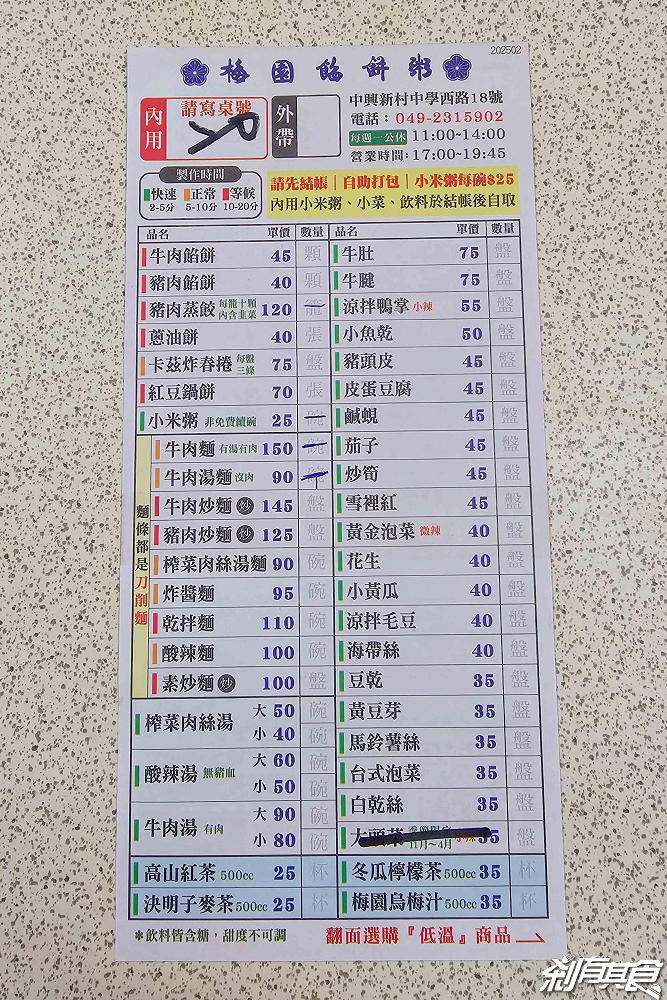 202502
梅園餡餅粥
內用 請寫桌號
外帶
中興新村中學西路18號
電話：049-2315902
每週一公休 11:00~14:00
營業時間：17:00~19:45
製作時間
快速 正常 等候
2-5分 5-10分 10-20分
請先結帳｜自助打包｜小米粥每碗$25
內用小米粥、小菜、飲料於結帳後自取
品名 單價 數量
牛肉餡餅 45 顆
豬肉餡餅 40 顆
豬肉蒸餃 每籠十顆 內含韭菜 120 籠
蔥油餅 40 張
卡茲炸春捲 每盤三條 75 盤
紅豆鍋餅 70 張
小米粥 非免費續碗 25 碗
麵條都是刀削麵
牛肉麵 有湯有肉 150 碗
牛肉湯麵 沒肉 90 碗
牛肉炒麵 炒 145 盤
豬肉炒麵 炒 125 盤
榨菜肉絲湯麵 90 碗
炸醬麵 95 碗
乾拌麵 110 碗
酸辣麵 100 碗
素炒麵 炒 100 盤
榨菜肉絲湯 大 50 碗
小 40 碗
酸辣湯 無豬血 大 60 碗
小 50 碗
牛肉湯 有肉 大 90 碗
小 80 碗
高山紅茶 500cc 25 杯
決明子麥茶 500cc 25 杯
品名 單價 數量
牛肚 75 盤
牛腱 75 盤
涼拌鴨掌 小辣 55 盤
小魚乾 50 盤
豬頭皮 45 盤
皮蛋豆腐 45 盤
鹹蜆 45 盤
茄子 45 盤
炒筍 45 盤
雪裡紅 45 盤
黃金泡菜 微辣 40 盤
花生 40 盤
小黃瓜 40 盤
涼拌毛豆 40 盤
海帶絲 40 盤
豆乾 35 盤
黃豆芽 35 盤
馬鈴薯絲 35 盤
台式泡菜 35 盤
白乾絲 35 盤
大頭菜 11月~4月 35 盤
冬瓜檸檬茶 500cc 35 杯
梅園烏梅汁 500cc 35 杯
＊飲料皆含糖，甜度不可調
翻面選購『低溫』商品
剎有其食